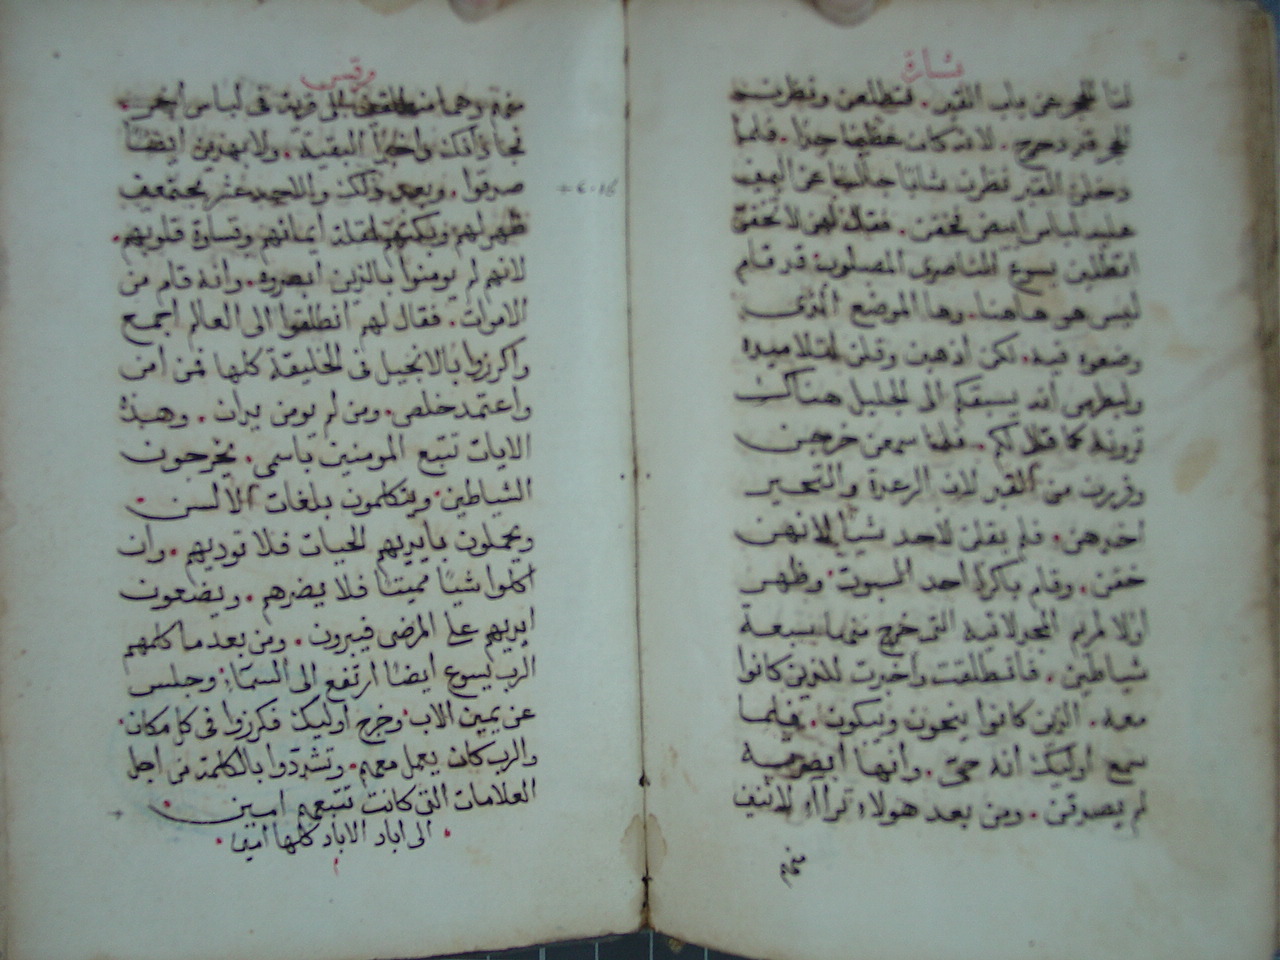 بشارة
لنا الحجر عن باب القبر. فتطلعن ونظرت
الحجر قد دحرج. لانه كان عظيما جدا. فلما
دخلن القبر نظرن شابا جالسا عن اليمين
عليه لباس ابيض فخفن. فقال لهن لا تخفن
اتطلبن يسوع الناصري المصلوب قد قام
ليس هو هاهنا. وها الموضع الذي
وضعوه فيه. لكن اذهبن وقلن لتلاميذه
ولبطرس انه يسبقكم الى الجليل هناك
ترونه كما قال لكم. فلما سمعن خرجن
وفررن من القبر لان الرعدة والتحير
اخذهن. فلم يقلن لاحد شيا لانهن
خفن. وقام باكرا احد السبوت وظهر
اولا لمريم المجدلانيه التي خرج منها سبعة
شياطين. فانطلقت واخبرت للذين كانوا
معه. الذين كانوا ينحون ويبكون. فلما
سمع اوليك انه حي. وانها ابصرته
لم يصدقن. ومن بعد هولاء ترااء لاثنين
منهم
مرقس
منهم وهما منطلقين الى قرية في لباس اخر.
فجا ذانك واخبرا البقية. ولا بهذين ايضا
صدقوا. وبعد ذلك والاحد عشر مجتمعين
ظهر لهم وبكتهم لقلة ايمانهم وقساوة قلوبهم.
لانهم لم يومنوا بالذين ابصروه. وانه قام من
الاموات. فقال لهم انطلقوا الى العالم اجمع
واكرزوا بالانجيل في الخليقة كلها فمن امن
واعتمد خلص. ومن لم يومن يدان. وهذه
الايات تتبع المومنين باسمي. يخرجون
الشياطين. ويتكلمون بلغات الالسن.
ويحملون بايديهم الحيات فلا توديهم. وان
اكلوا شيا مميتا فلا يضرهم. ويضعون
ايديهم على المرضى فيبرون. ومن بعد ما كلمهم
الرب يسوع ايضا ارتفع الى السماء. وجلس
عن يمين الاب. وخرج اوليك فكرزوا في كل مكان.
والرب كان يعمل معهم. وتشددوا بالكلمة من اجل
العلامات التي كانت تتبعهم امين.
الى اباد الاباد كلها امين.